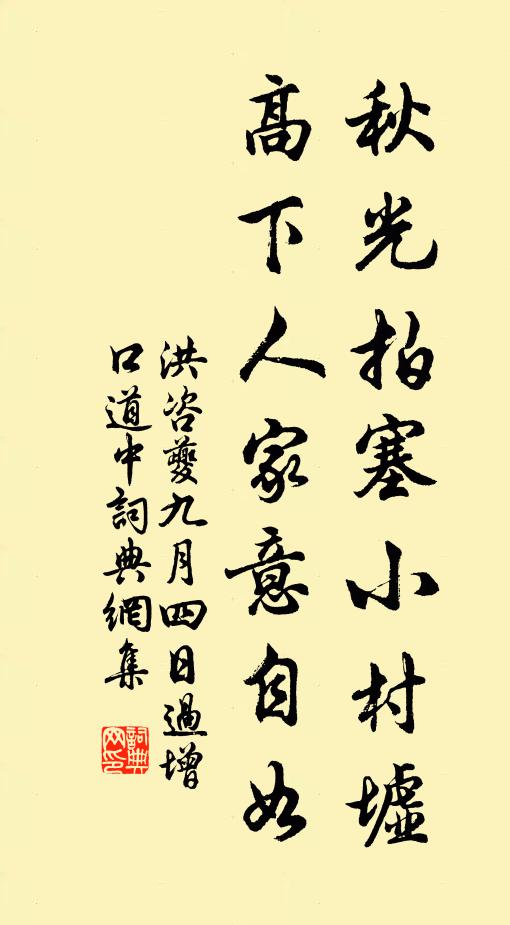 秋光拍塞小村墟
高下人家意自如
洪咨夔九月四日過增
口道中詞典網集
詞典网印